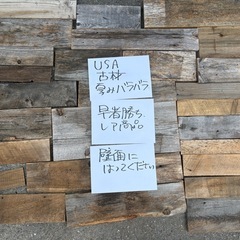 USA
古材
厚みバラバラ
早者勝ち
レア商品
壁面に
はってください